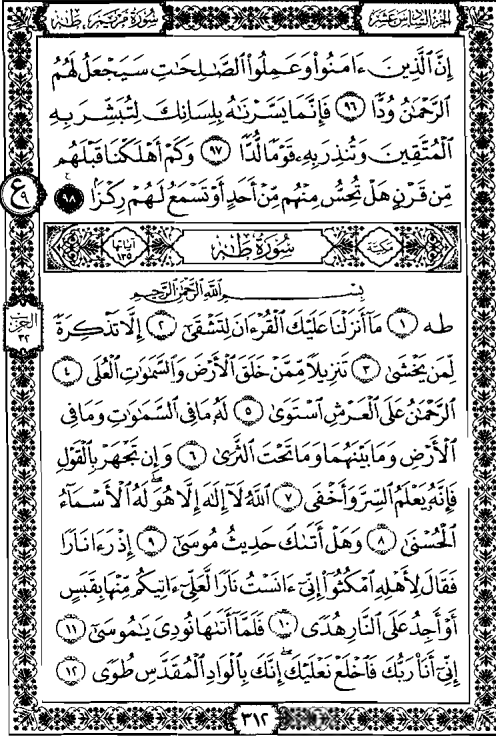 الجزء السادس عشر
سورة مريم، طه
إِنَّ الَّذِينَ ءَامَنُواْ وَعَمِلُواْ الصَّـٰلِحَـٰتِ سَيَجْعَلُ لَهُمُ
الرَّحْمَـٰنُ وُدًّا ٩٦ فَإِنَّمَا يَسَّرْنَـٰهُ بِلِسَانِكَ لِتُبَشِّرَ بِهِ
الْمُتَّقِينَ وَتُنذِرَ بِهِۦ قَوْمًا لُّدًّا ٩٧ وَكَمْ أَهْلَكْنَا قَبْلَهُم
مِّن قَرْنٍ هَلْ تُحِسُّ مِنْهُم مِّنْ أَحَدٍ أَوْ تَسْمَعُ لَهُمْ رِكْزًا ٩٨
ع ٩
مكية
سُورَةُ طه
آياتها ١٣٥
بِسْمِ اللَّهِ الرَّحْمَـٰنِ الرَّحِيمِ
الحزب ٣٢
طه ١ مَآ أَنزَلْنَا عَلَيْكَ الْقُرْءَانَ لِتَشْقَىٰٓ ٢ إِلَّا تَذْكِرَةً
لِّمَن يَخْشَىٰ ٣ تَنزِيلًا مِّمَّنْ خَلَقَ الْأَرْضَ وَالسَّمَـٰوَٰتِ الْعُلَى ٤
الرَّحْمَـٰنُ عَلَى الْعَرْشِ اسْتَوَىٰ ٥ لَهُۥ مَا فِي السَّمَـٰوَٰتِ وَمَا فِي
الْأَرْضِ وَمَا بَيْنَهُمَا وَمَا تَحْتَ الثَّرَىٰ ٦ وَإِن تَجْهَرْ بِالْقَوْلِ
فَإِنَّهُۥ يَعْلَمُ السِّرَّ وَأَخْفَى ٧ اللَّهُ لَآ إِلَـٰهَ إِلَّا هُوَ ۖ لَهُ الْأَسْمَآءُ
الْحُسْنَىٰ ٨ وَهَلْ أَتَىٰكَ حَدِيثُ مُوسَىٰٓ ٩ إِذْ رَءَا نَارًا
فَقَالَ لِأَهْلِهِ امْكُثُوٓاْ إِنِّيٓ ءَانَسْتُ نَارًا لَّعَلِّيٓ ءَاتِيكُم مِّنْهَا بِقَبَسٍ
أَوْ أَجِدُ عَلَى النَّارِ هُدًى ١٠ فَلَمَّآ أَتَىٰهَا نُودِيَ يَـٰمُوسَىٰٓ ١١
إِنِّيٓ أَنَاْ رَبُّكَ فَاخْلَعْ نَعْلَيْكَ ۖ إِنَّكَ بِالْوَادِ الْمُقَدَّسِ طُوًى ١٢
٣١٢